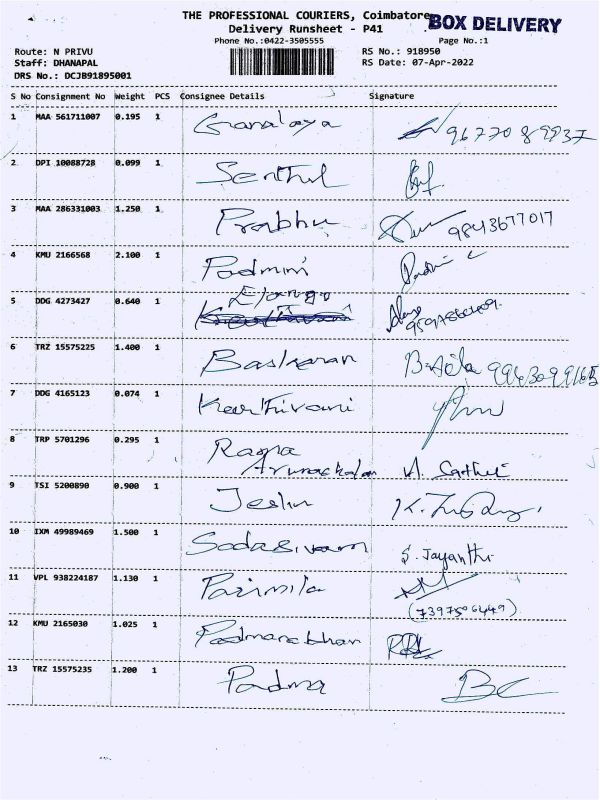 THE PROFESSIONAL COURIERS, Coimbatore
BOX DELIVERY
Delivery Runsheet - P41
Phone No.:0422-3505555
Page No.:1
Route: N PRIVU
RS No.: 918950
Staff: DHANAPAL
RS Date: 07-Apr-2022
DRS No.: DCJB91895001
S No Consignment No Weight PCS Consignee Details Signature
1 MAA 561711007 0.195 1
2 DPI 10088728 0.099 1 Senthil
3 MAA 286331003 1.250 1 Prabhu 9843677017
4 KMU 2166568 2.100 1 Padmini
5 DDG 4273427 0.640 1 Elango
6 TRZ 15575225 1.400 1 Baskaran
7 DDG 4165123 0.074 1 Keerthivani
8 TRP 5701296 0.295 1 Raja
Arunachalam
9 TSI 5200890 0.900 1 Jeslin
10 IXM 49989469 1.500 1 Sadasivam S. Jayanthi
11 VPL 938224187 1.130 1 Parimila
(7397506449)
12 KMU 2165030 1.025 1 Padmanabhan
13 TRZ 15575235 1.200 1 Padma